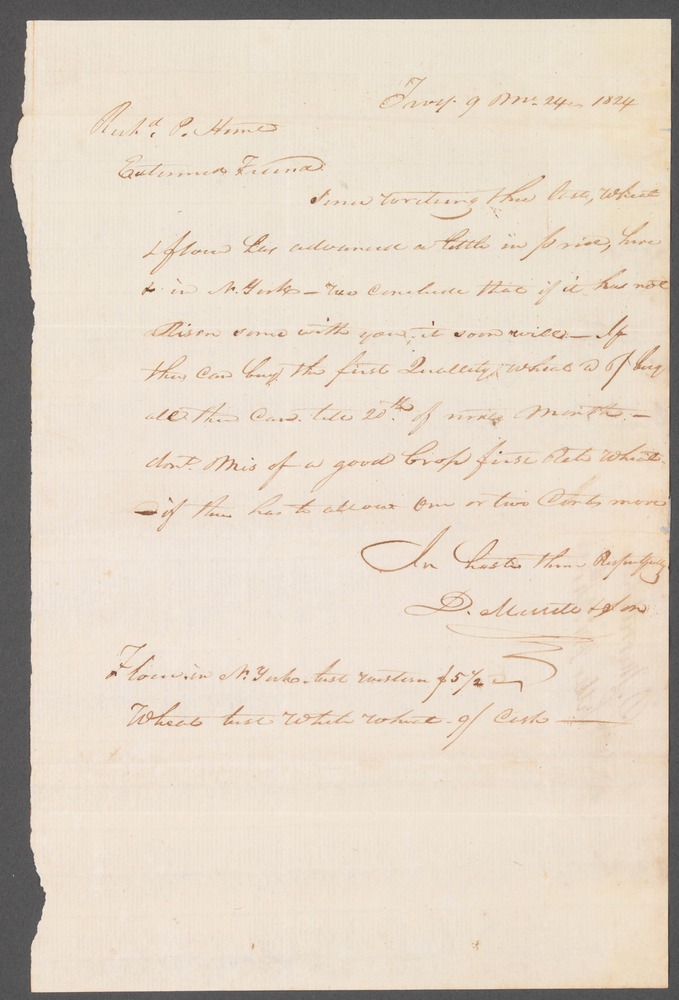 Troy 9 Mo. 24 1824
Richd. P. Hunt
Esteemed Friend
Since writeing thee last, wheat
& flour has advanced a little in price, here
& in N. York – we conclude that if it has not
Risen some with you, it soon will. – If
thee can buy the first Quallety wheat a buy
all thee can till 20th of next Month. –
dont Mis of a good Crop first Rate Wheat
– if thee has to allow One or two Cents more
In haste thine Respectfully
D. Merritt & Son
Flour in N. York best western $5½
Wheat best White wheat 9/ Cash